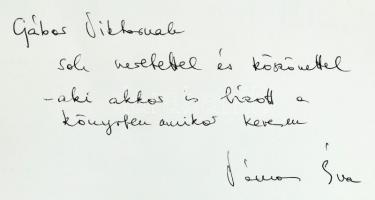 Gábor Viktornak
sok szeretettel és köszönettel
- aki akkor is bízott a
könyvben amikor kevesen
János Éva